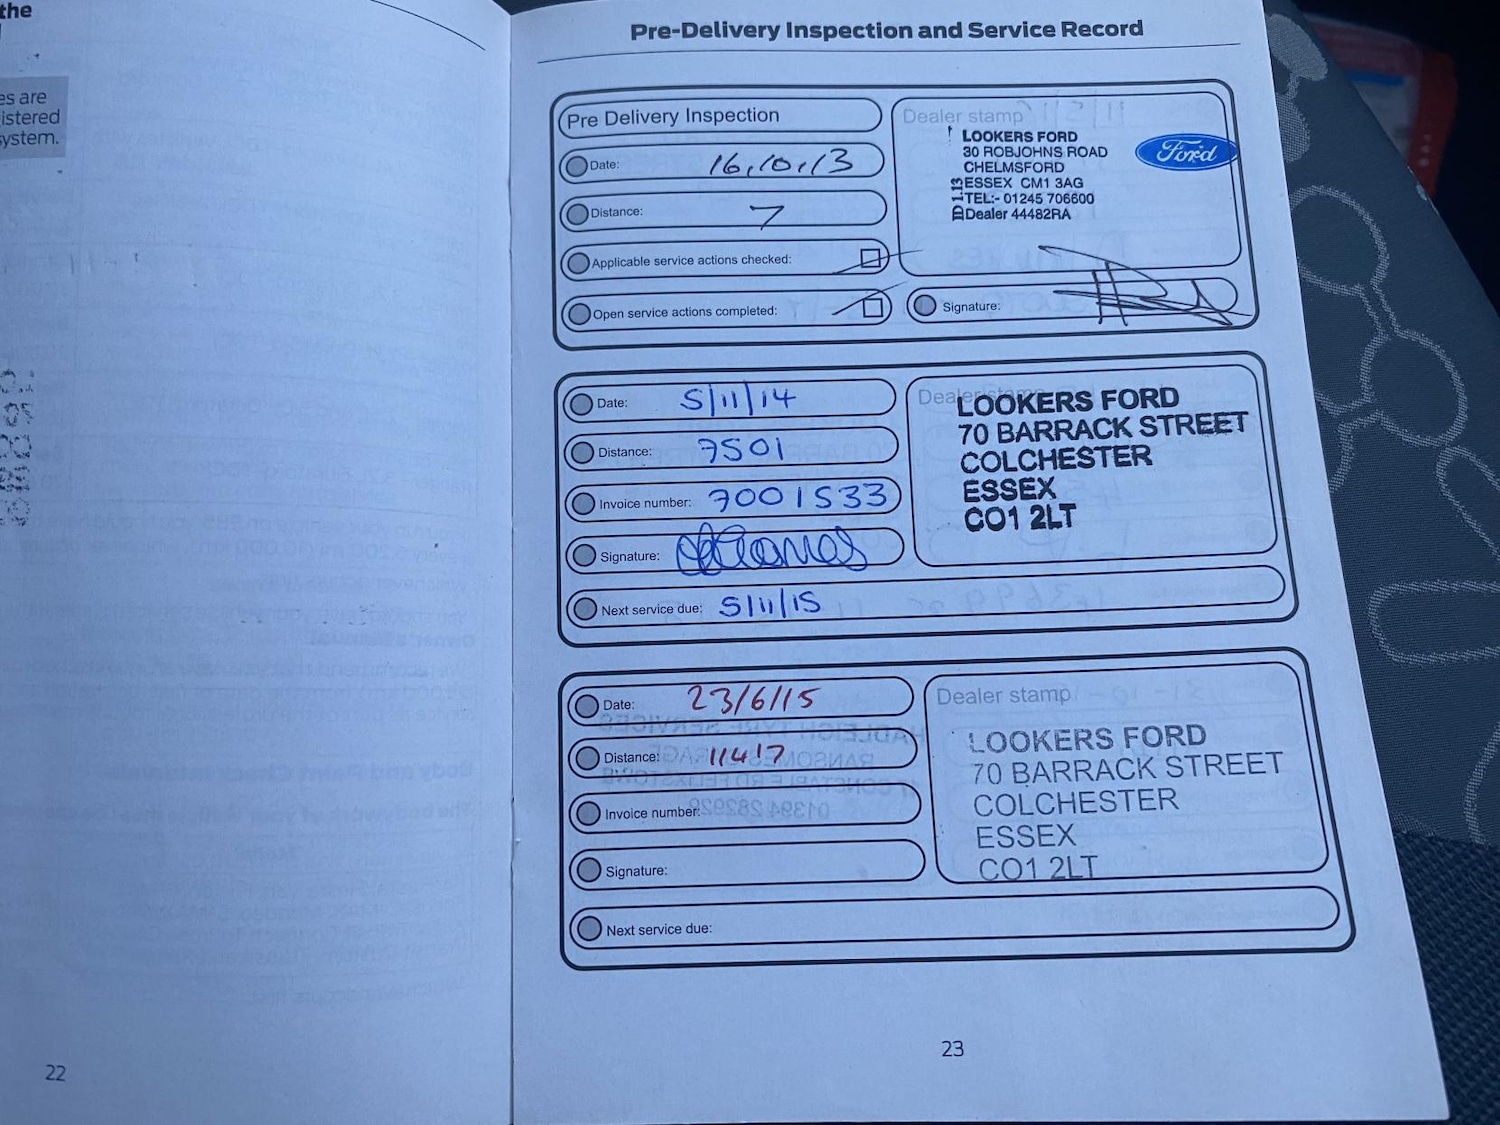 the
es are
istered
system.
22
Pre-Delivery Inspection and Service Record
Pre Delivery Inspection
Date: 16,10,13
Distance: 7
Applicable service actions checked:
Open service actions completed:
Dealer stamp
LOOKERS FORD
30 ROBJOHNS ROAD
CHELMSFORD
ESSEX CM1 3AG
TEL:- 01245 706600
Dealer 44482RA
Ford
Signature:
Date: 5/11/14
Distance: 7501
Invoice number: 7001533
Signature:
Next service due: 5/11/15
Dealer stamp
LOOKERS FORD
70 BARRACK STREET
COLCHESTER
ESSEX
CO1 2LT
Date: 23/6/15
Distance: 11417
Invoice number:
Signature:
Next service due:
Dealer stamp
LOOKERS FORD
70 BARRACK STREET
COLCHESTER
ESSEX
CO1 2LT
23